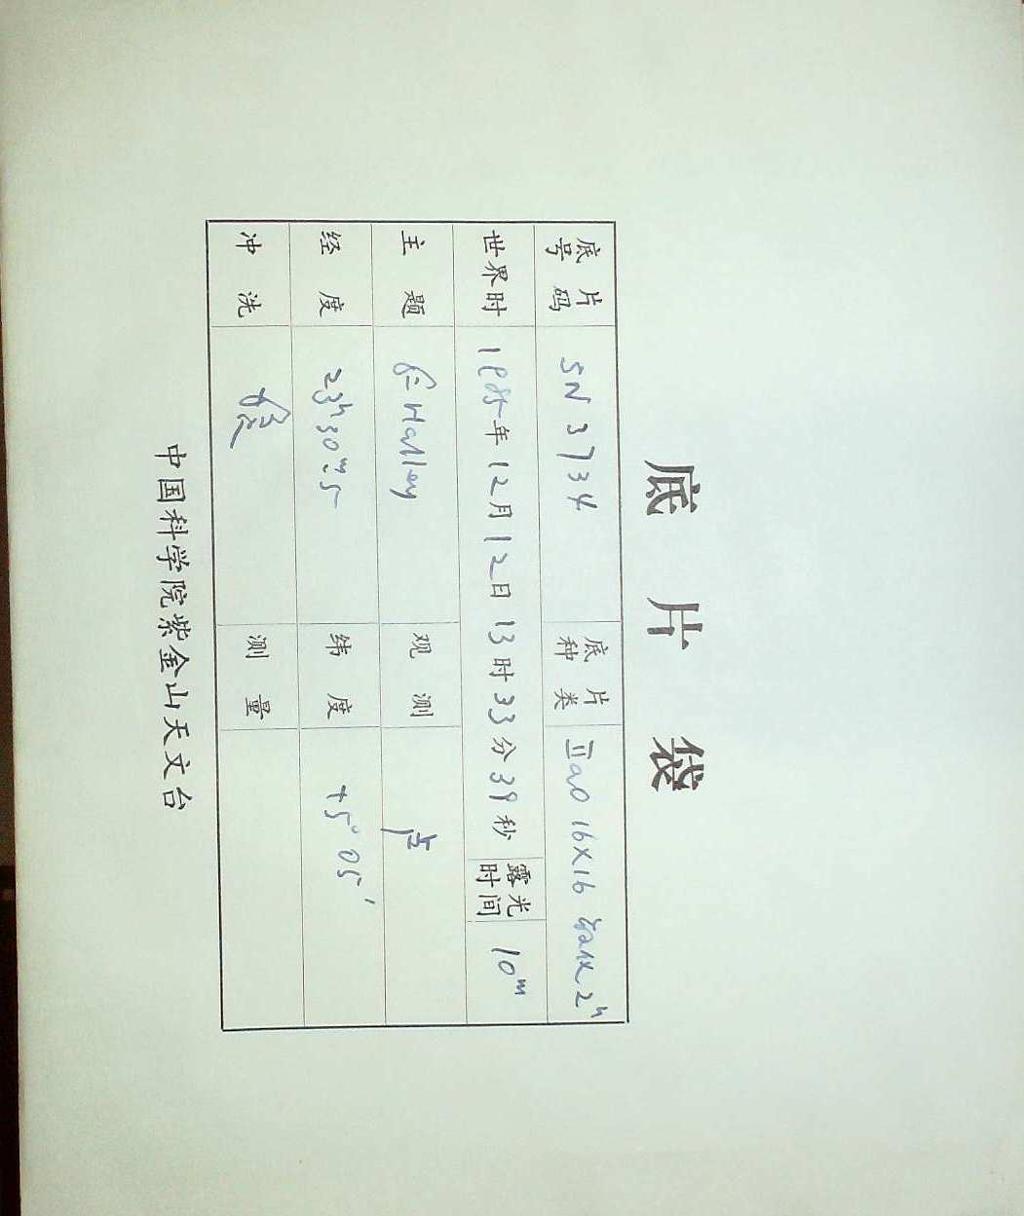 底片袋
底片号码 SN 3734 底片种类 IIaO 16×16 敏化 2ʰ
世界时 1985年12月12日13时33分39秒 露光时间 10ᵐ
主题 P-Halley 观测
经度 23ʰ30ᵐ.5 纬度 +5°05′
冲洗 测量
中国科学院紫金山天文台